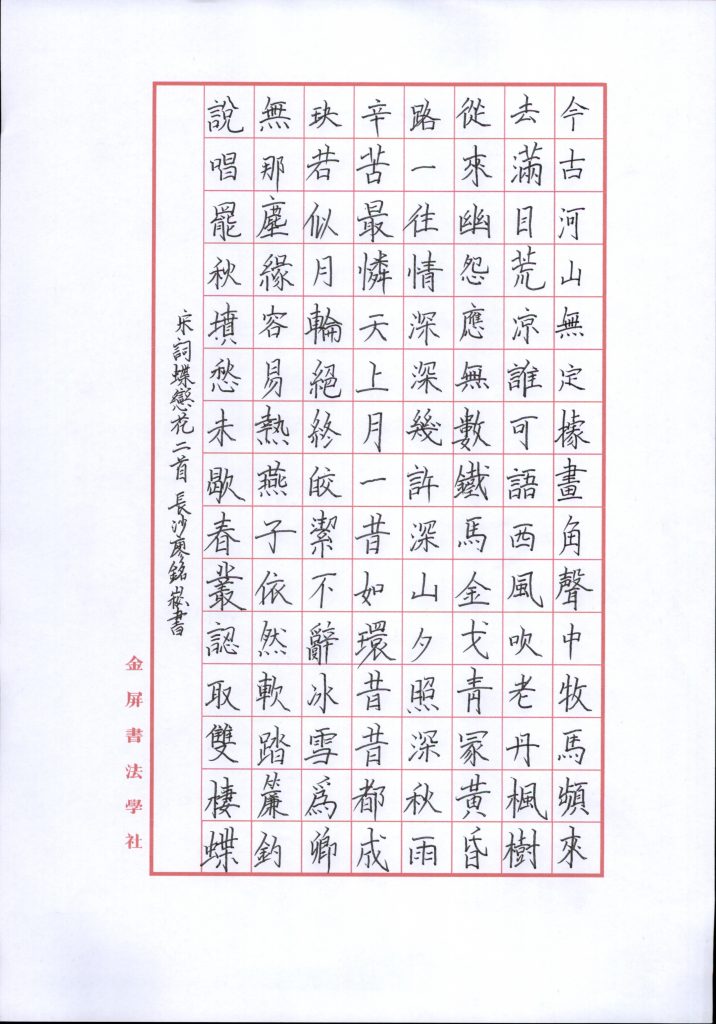 今古河山無定據畫角聲中牧馬頻來
去滿目荒涼誰可語西風吹老丹楓樹
從來幽怨應無數鐵馬金戈青冢黃昏
路一往情深深幾許深山夕照深秋雨
辛苦最憐天上月一昔如環昔昔都成
玦若似月輪絕終皎潔不辭冰雪爲卿
無那塵緣容易熱燕子依然軟踏簾鈞
說唱罷秋墳愁未歇春叢認取雙棲蝶
宋詞蝶戀花二首 長沙廖銘崧書
金屏書法學社